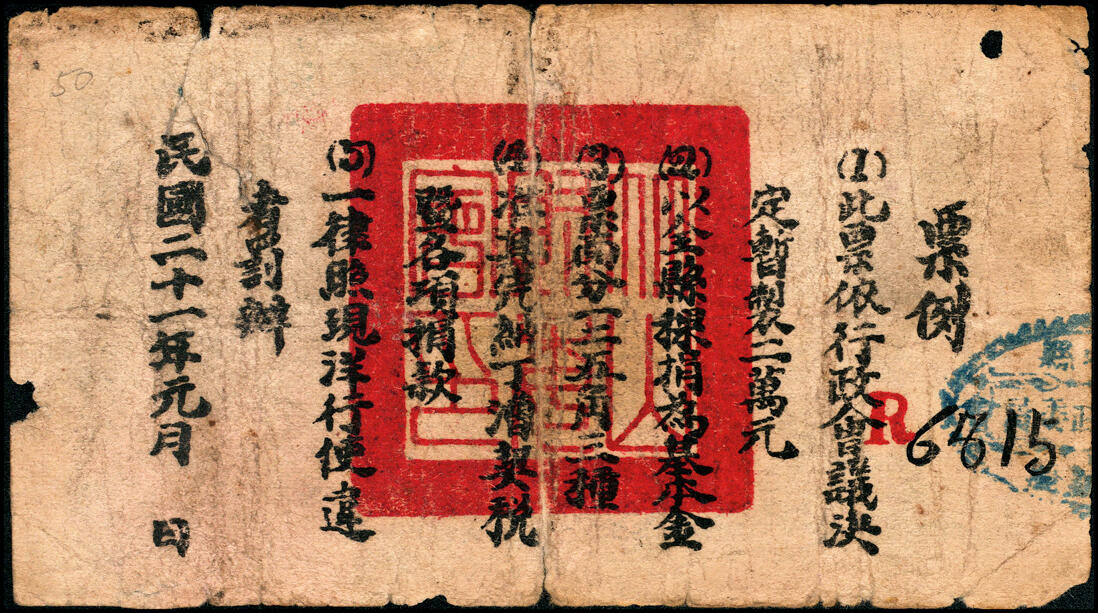 票例
(1)此票依行政會議決
定暫製二萬元
(2)以全縣粿捐為基本金
(3)票面分一二五角三種
(4)准沮完納丁酒契稅
暨各項捐款
(5)一律照現洋行使違
者罰辦
民國二十一年元月 日
R
6815
50